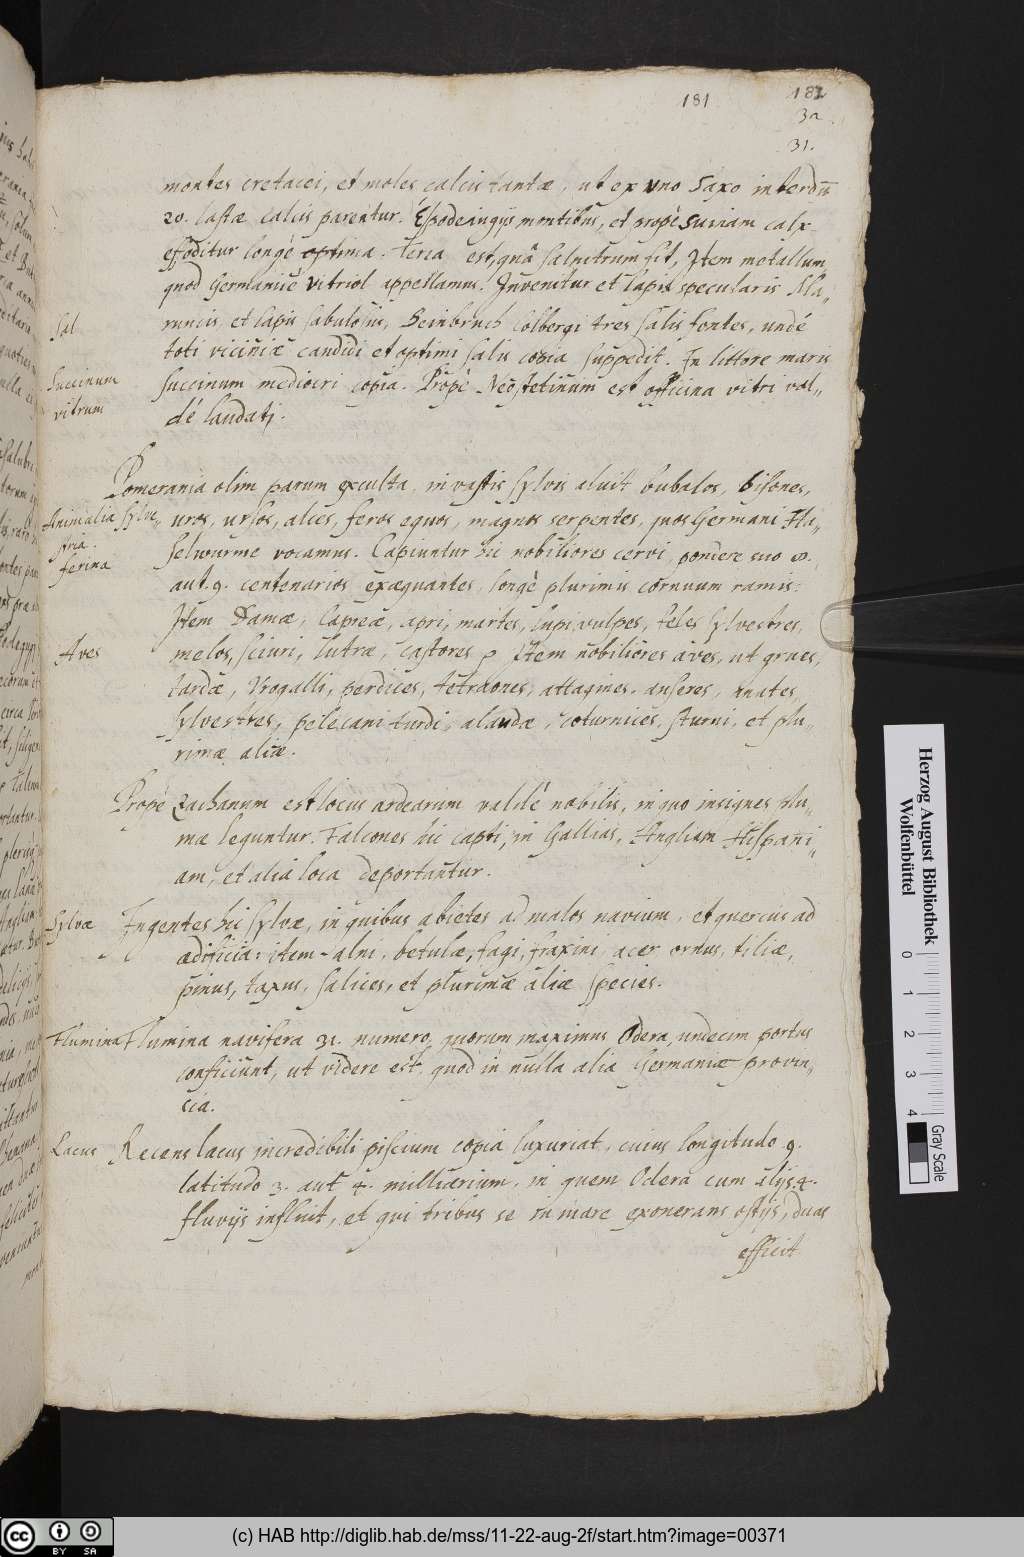 181
182
32
31.
montes cretacei, et moles calcis tantæ, ut ex uno Saxo interdū
20. lastæ calcis parentur. montibus, et propè calx
effoditur longè optima. Terra est, quâ salnitrum fit, Item metallum
quod Germanicè Vitriol appellamus. Invenitur et lapis specularis
et lapis sabulosus, Steinbruch Colbergi tres salis fontes, undè
Sal
toti viciniæ candidi et optimi salis copia suppedit. In littore maris
Succinum
succinum mediocri copia. Propè Neostetinum est officina vitri val„
vitrum
dè laudati.
Pomerania olim parum exculta, in vastis sylvis aluit bubalos, bisones,
Animalia sylve„
uros, ursos, alces, feros equos, magnos serpentes, quos Germani Ha„
stria.
selwurme vocamus. Capiuntur hic nobiliores cervi, pondere suo
ferina
aut 9. centenarios exæquantes, longè plurimis cornuum ramis.
Item Damæ, Capreæ, apri, martes, lupi, vulpes, feles sylvestres,
Aves
meles, sciuri, lutræ, castores Item nobiliores aves, ut grues,
tardæ, Urogalli, perdices, tetraones, attagines, anseres, anates
sylvestres, pelecani turdi, alaudæ, coturnices, sturni, et plu„
rimæ aliæ.
Propè Zachanum est locus ardearum valdè nobilis, in quo insignes plu„
mæ leguntur. Falcones hic capti, in Gallias, Angliam Hispani„
am, et alia loca deportantur.
Sylvæ
Ingentes hic sylvæ, in quibus abietes ad malos navium, et quercus ad
ædificia: item alni, betulæ, fagi, fraxini, acer, ornus, tiliæ,
pinus, taxus, salices, et plurimæ aliæ species.
Flumina
Flumina navifera 31. numero, quorum maximus Odera, undecim portus
conficiunt, ut videre est, quod in nulla alia Germaniæ provin„
cia.
Lacus
Recens lacus incredibili piscium copia luxuriat, cuius longitudo 9.
latitudo 3. aut 4. milliarium, in quem Odera cum alijs 4.
fluvijs influit, et qui tribus se in mare exonerans ostijs, duas
efficit
Herzog August Bibliothek
Wolfenbüttel
0 1 2 3 4
Gray Scale
CC BY SA
(c) HAB http://diglib.hab.de/mss/11-22-aug-2f/start.htm?image=00371